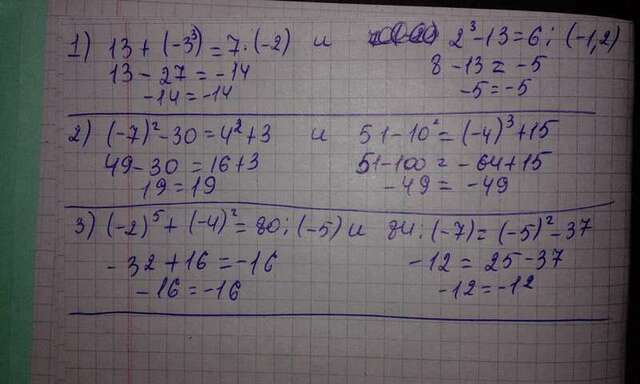 1) 13 + (-3³) = 7 · (-2) и 2³ - 13 = 6 : (-1,2)
13 - 27 = -14 8 - 13 = -5
-14 = -14 -5 = -5
2) (-7)² - 30 = 4² + 3 и 51 - 10² = (-4)³ + 15
49 - 30 = 16 + 3 51 - 100 = -64 + 15
19 = 19 -49 = -49
3) (-2)⁵ + (-4)² = 80 : (-5) и 84 : (-7) = (-5)² - 37
-32 + 16 = -16 -12 = 25 - 37
-16 = -16 -12 = -12